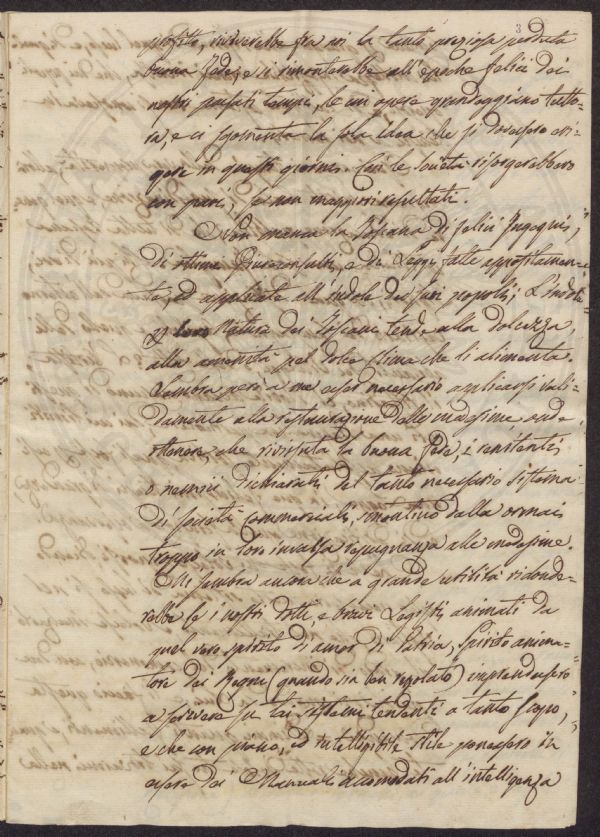 3
profitto, riviverebbe fra noi la tanto preziosa perduta
buona fede, e si rimonterebbe all'epoche felici dei
nostri passati tempi, le cui opere grandeggiano tutto-
ra, e ci sgomenta la sola idea che si dovessero eri-
gere in questi giorni. Così le società risorgerebbero
con pari, se non maggiori resultati.
Non manca la Toscana di felici Ingegni,
di ottimi Giureconsulti, e di Leggi fatte appositamen-
te, ed applicate all'indole dei suoi popoli; L'indole
e Natura dei Toscani tende alla dolcezza,
alla amenità pel dolce clima che li alimenta.
Sembra però a me esser necessario applicarsi vali-
damente alla restaurazione delle medesime onde
ottenere, che rivissuta la buona fede, i renitenti
o nemici dichiarati del tanto necessario sistema
di società commerciali, smontino dalla oramai
troppo in loro invalsa repugnanza alle medesime.
Mi sembra ancora che a grande utilità ridonde-
rebbe se i nostri dotti, e bravi Legisti, animati da
quel vero spirito di amor di Patria, Spirito anima-
tore dei Regni (quando sia ben regolato) imprendessero
a scrivere su tai sistemi tendenti a tanto scopo,
e che con piano, ed intelligibile stile ponessero in
essere dei Manuali accomodati all'intelligenza